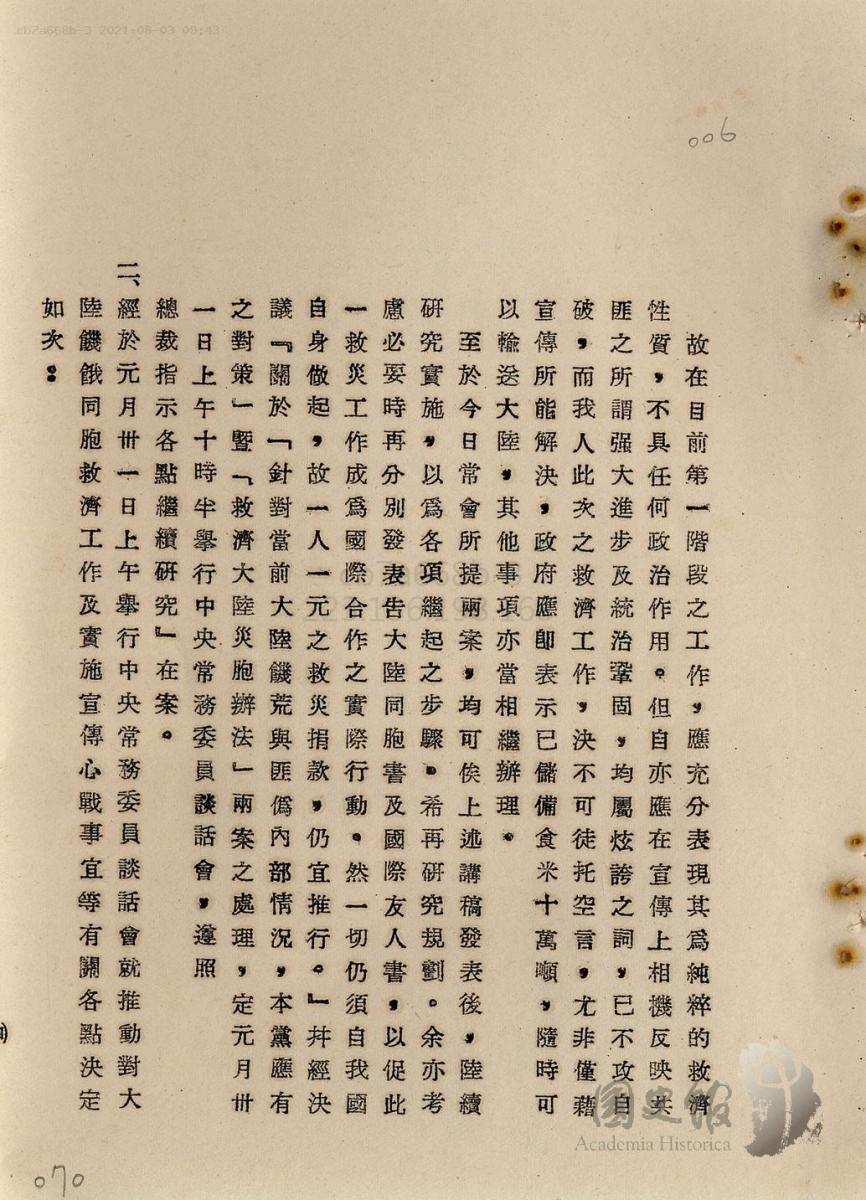 cb7a668b-3 2021-08-03 09:43
006
故在目前第一階段之工作，應充分表現其爲純粹的救濟
性質，不具任何政治作用。但自亦應在宣傳上相機反映共
匪之所謂强大進步及統治鞏固，均屬炫誇之詞，已不攻自
破，而我人此次之救濟工作，決不可徒托空言，尤非僅藉
宣傳所能解決，政府應卽表示已儲備食米十萬噸，隨時可
以輸送大陸，其他事項亦當相繼辦理。
至於今日常會所提兩案，均可俟上述講稿發表後，陸續
研究實施，以爲各項繼起之步驟。希再硏究規劃。余亦考
慮必要時再分別發表告大陸同胞書及國際友人書，以促此
一救災工作成爲國際合作之實際行動。然一切仍須自我國
自身做起，故一人一元之救災捐款，仍宜推行。』幷經決
議『關於「針對當前大陸饑荒與匪僞內部情況，本黨應有
之對策」暨「救濟大陸災胞辦法」兩案之處理，定元月卅
一日上午十時半舉行中央常務委員談話會，遵照
總裁指示各點繼續硏究』在案。
二、經於元月卅一日上午舉行中央常務委員談話會就推動對大
陸饑餓同胞救濟工作及實施宣傳心戰事宜等有關各點決定
如次：
國史館
Academia Historica
070